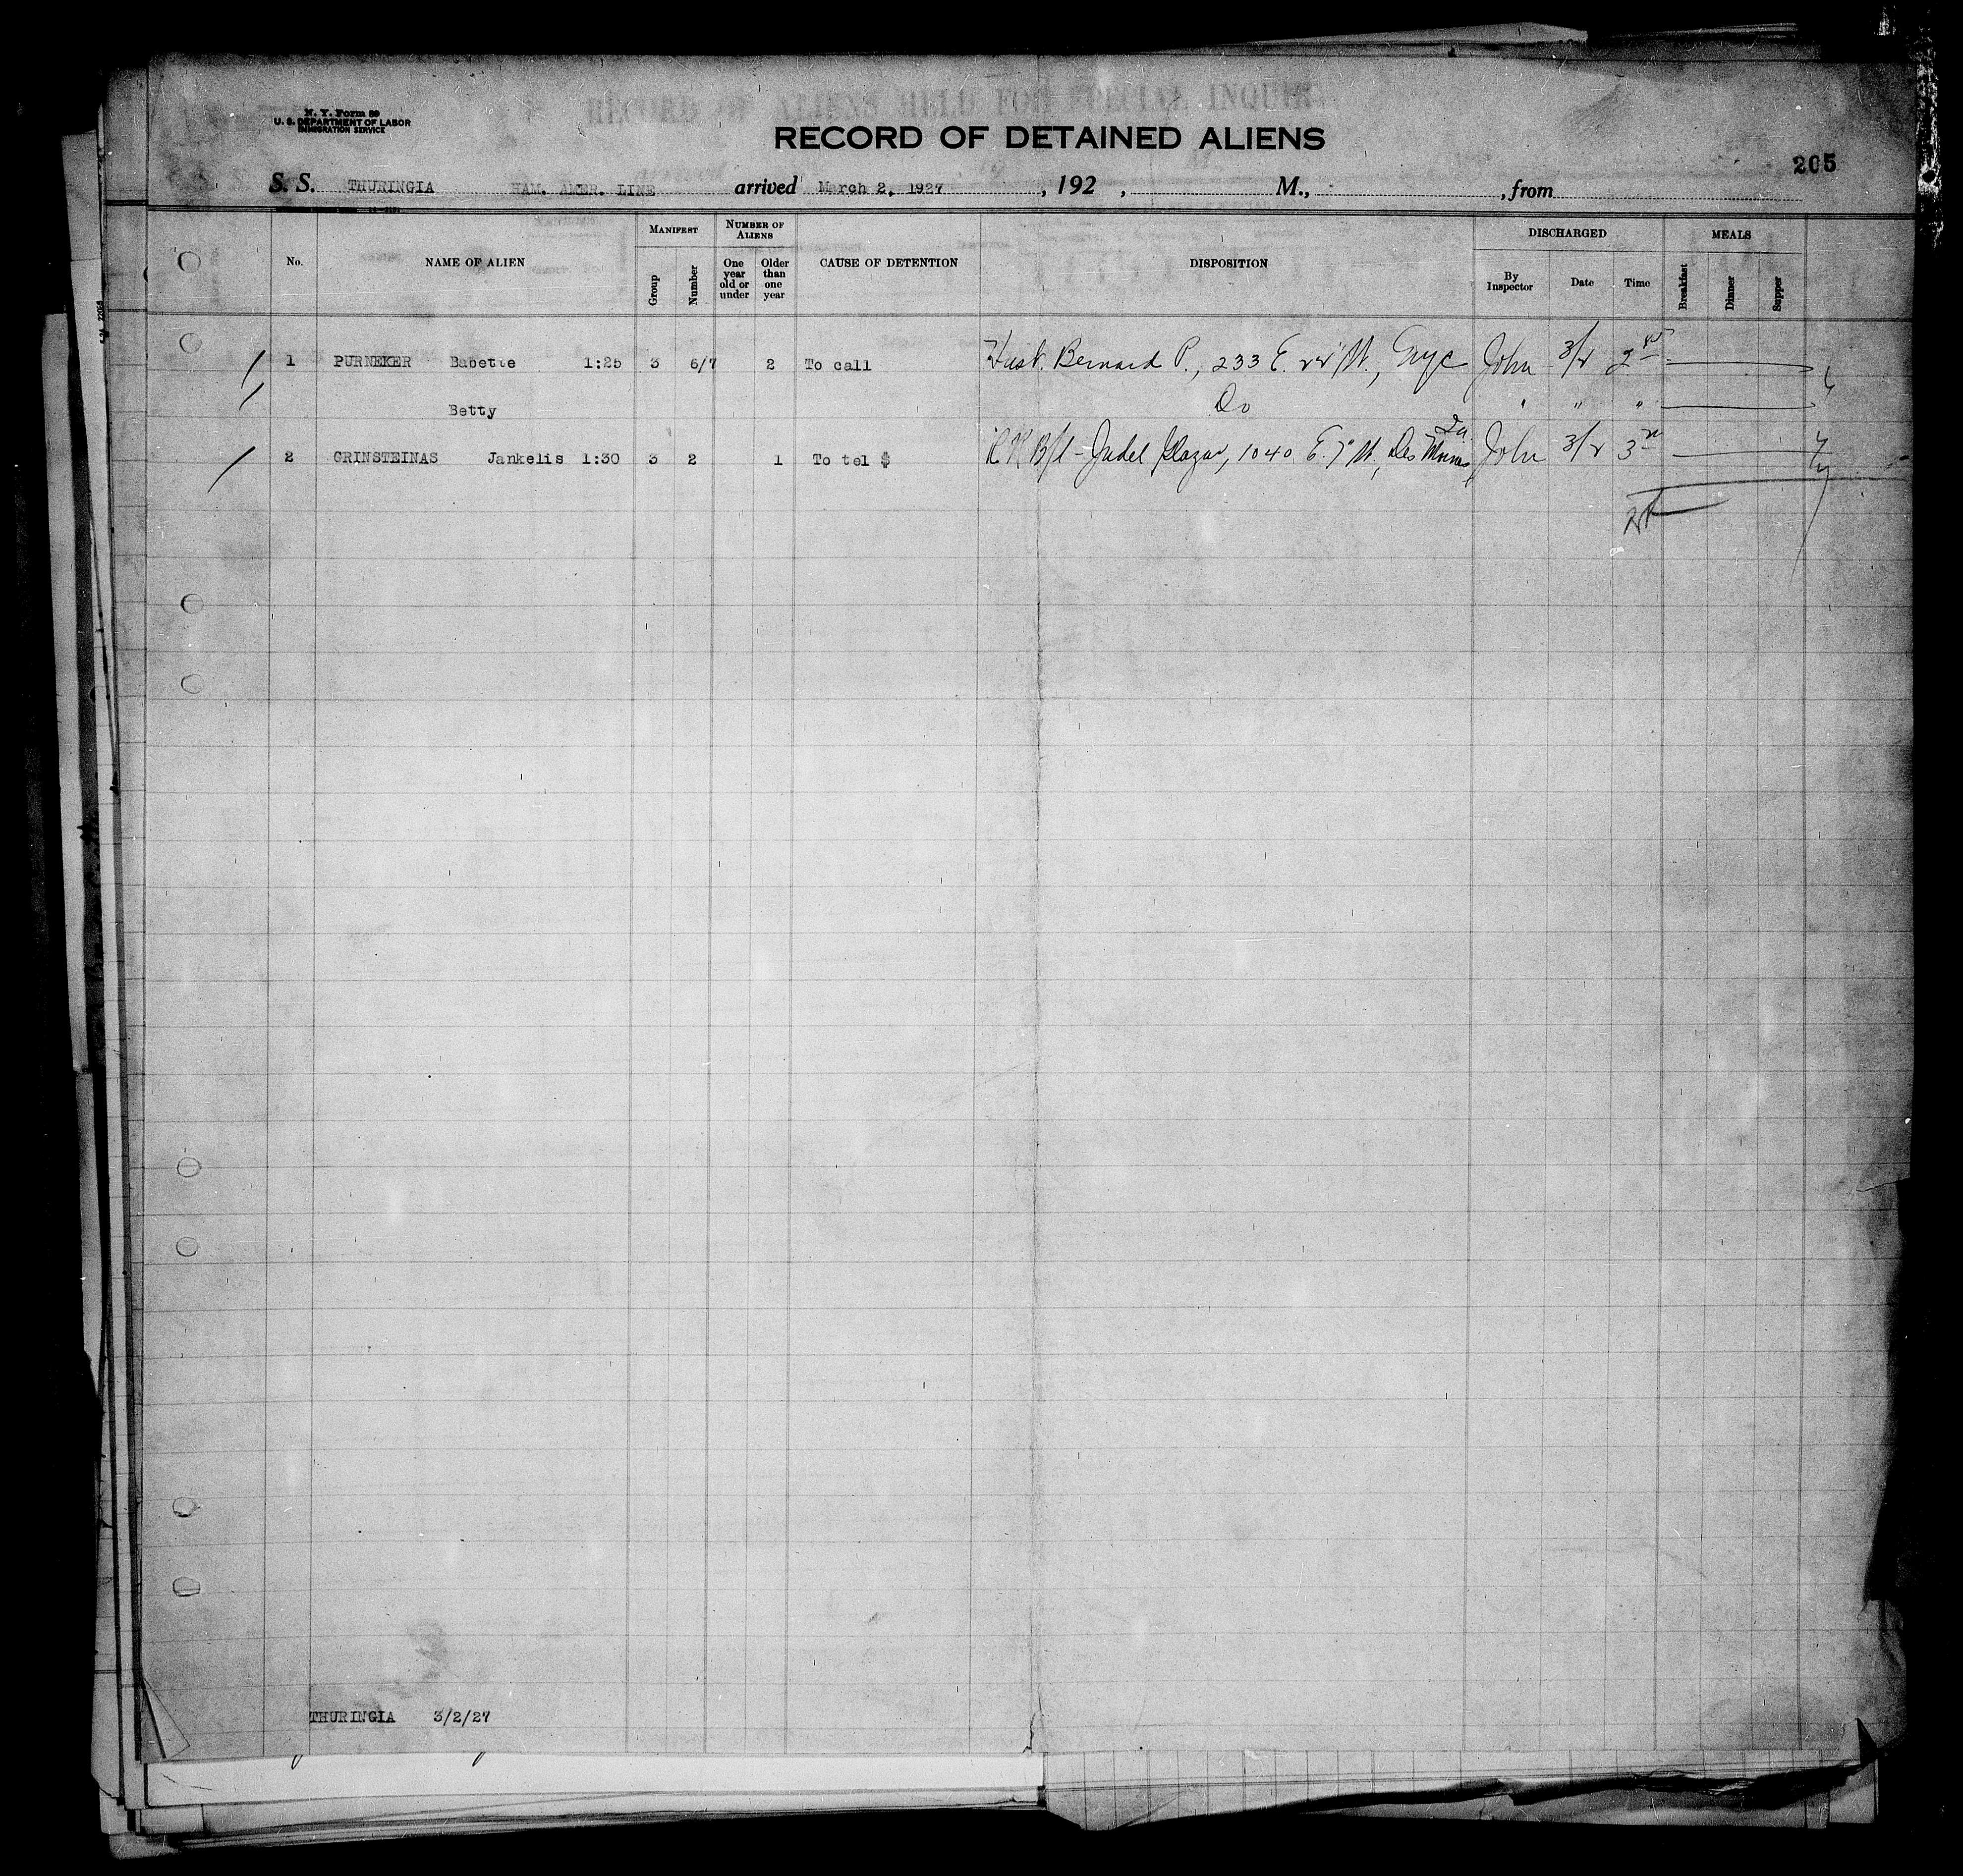 RECORD OF ALIENS HELD FOR SPECIAL INQUIRY
N. Y. Form 89
U. S. DEPARTMENT OF LABOR
IMMIGRATION SERVICE
RECORD OF DETAINED ALIENS
205
S. S. THURINGIA HAM. AMER. LINE arrived March 2, 1927, 192 , M., , from
No. NAME OF ALIEN MANIFEST Group Number NUMBER OF ALIENS One year old or under Older than one year CAUSE OF DETENTION DISPOSITION DISCHARGED By Inspector Date Time MEALS Breakfast Dinner Supper
1 PURNEKER Babette 1:25 3 6/7 2 To call Husb. Bernard P., 233 E. 22" St., Nyc John 3/2 2
Betty Do " " "
2 GRINSTEINAS Jankelis 1:30 3 2 1 To tel $ Judel 1040 E. 7" St., Des Moines Ia. John 3/2 3
THURINGIA 3/2/27